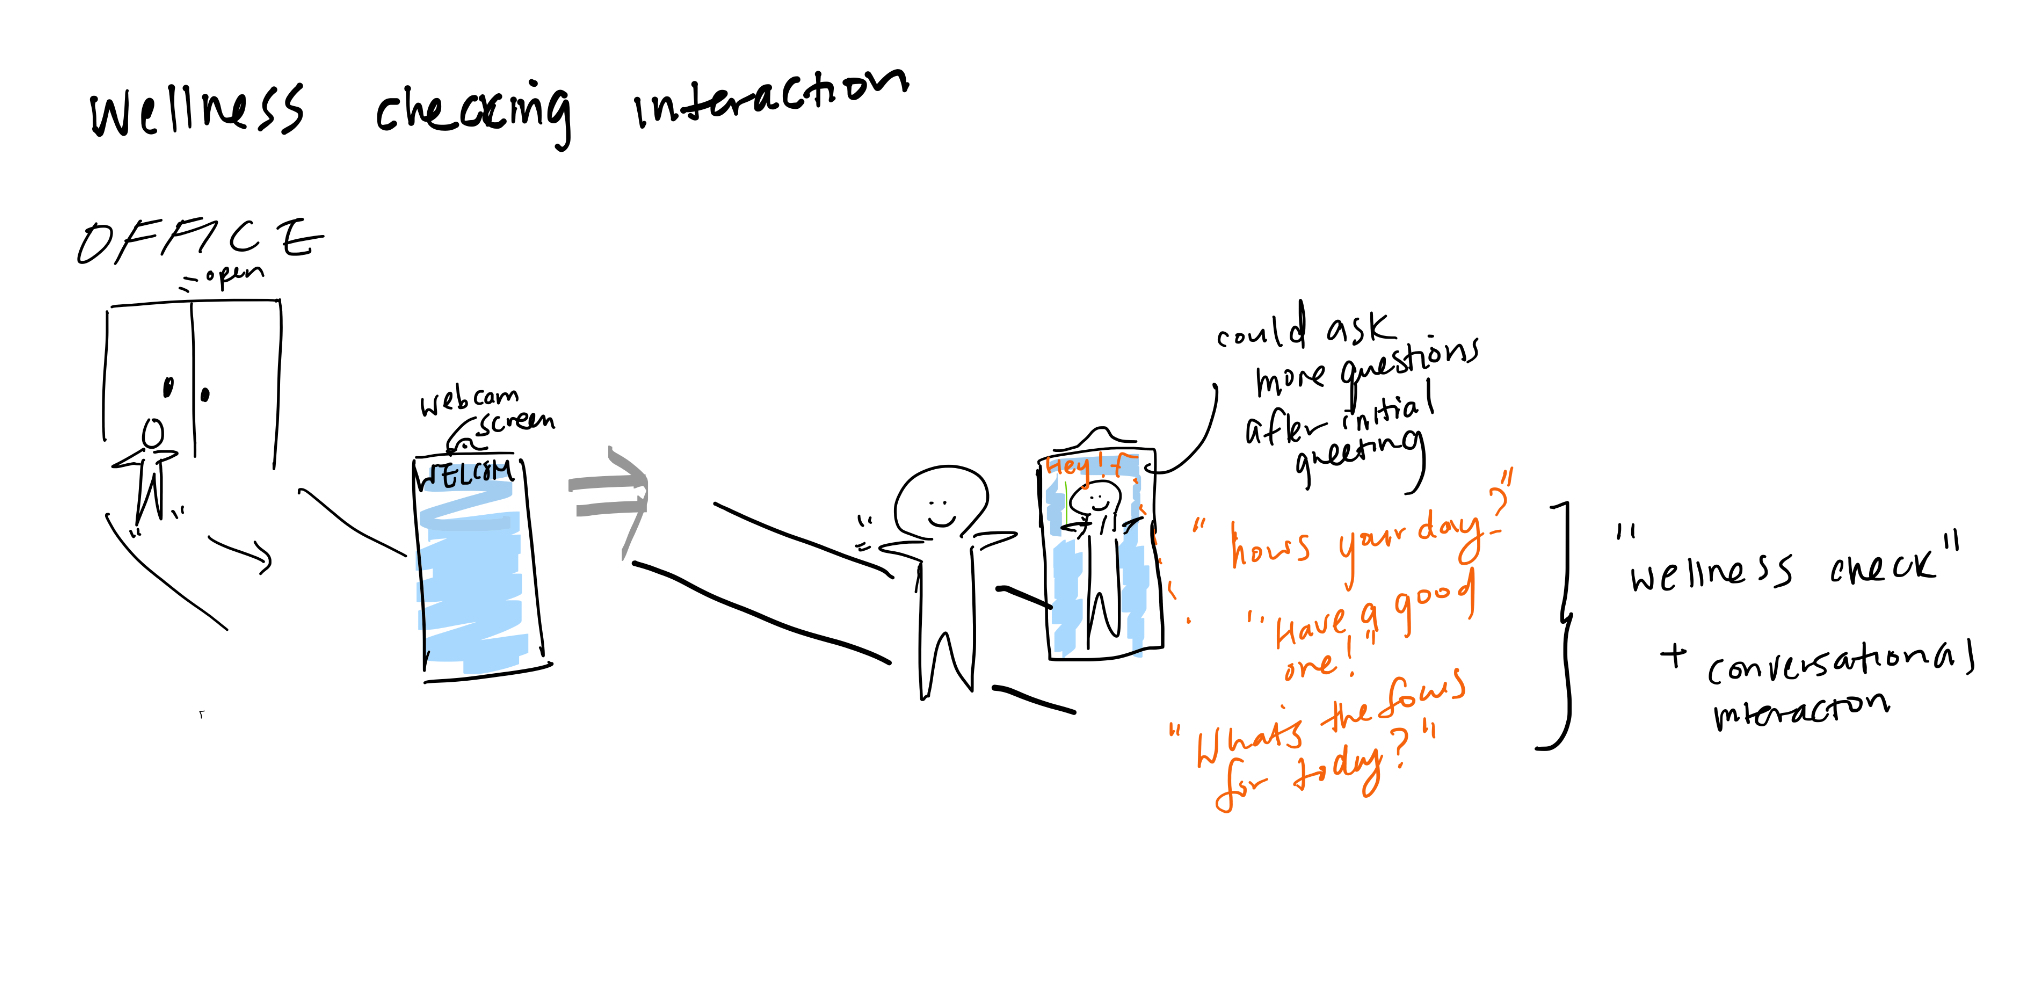 Wellness checking interaction
OFFICE
open
webcam
screen
WELCOM
could ask
more questions
after initial
greeting
Hey!
"hows your day?"
"Have a good
one!"
"What's the focus
for today?"
"wellness check"
+ conversational
interacton